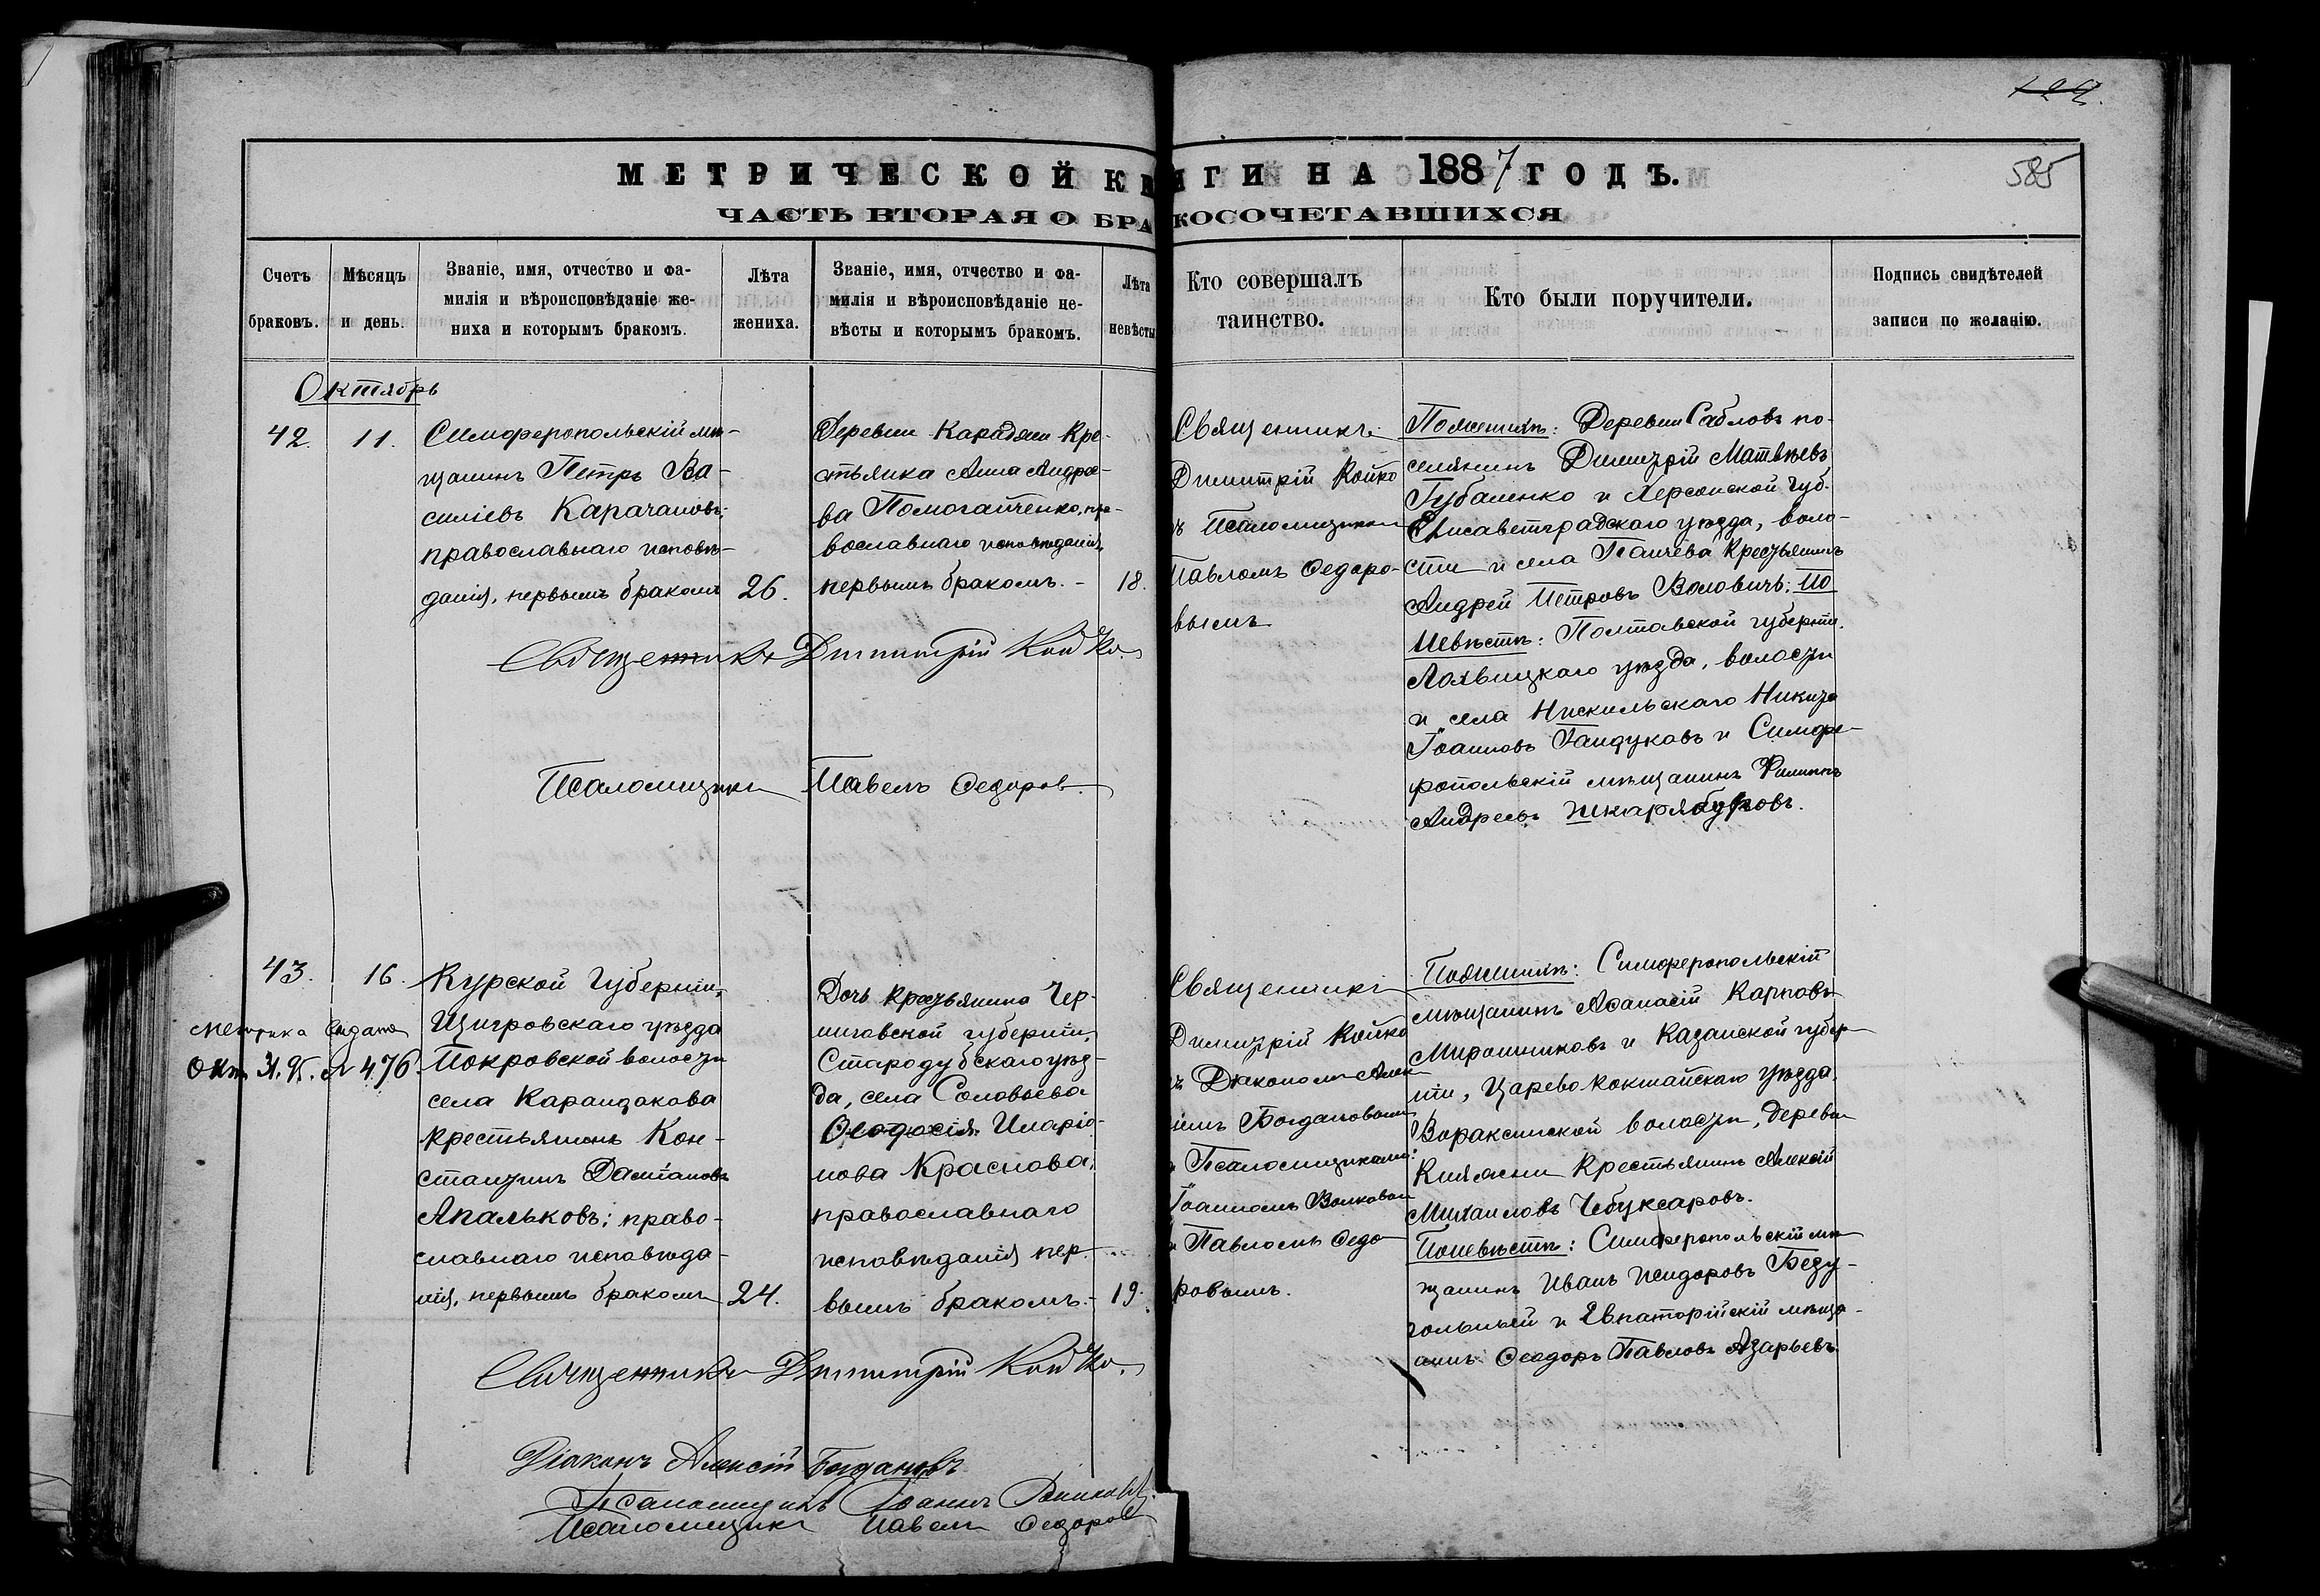 585
МЕТРИЧЕСКОЙ КНИГИ НА 1887 ГОДЪ.
ЧАСТЬ ВТОРАЯ О БРАКОСОЧЕТАВШИХСЯ
Счетъ браковъ.
Мѣсяцъ и день.
Званіе, имя, отчество и фа-
милія и вѣроисповѣданіе же-
ниха и которымъ бракомъ.
Лѣта жениха.
Званіе, имя, отчество и фа-
милія и вѣроисповѣданіе не-
вѣсты и которымъ бракомъ.
Лѣта невѣсты
Кто совершалъ
таинство.
Кто были поручители.
Подпись свидѣтелей
записи по желанію.
Октябрь
42. 11.
Симферопольскій мѣ-
щанинъ Петръ Ва-
силіевъ Карачановъ;
православнаго исповѣ-
данія, первымъ бракомъ
26.
Деревни Кре-
стьянка Анна Андрее-
ва Помогайченко, пра-
вославнаго исповѣданія,
первымъ бракомъ. -
18.
Священникъ
Димитрій Койко
съ Псаломщикомъ
Павломъ Ѳедоро-
вымъ
По женихѣ: Деревни Сабловъ по-
селянинъ Димитрій Матвѣевъ
Губаленко и Херсонской Губ.
Елисаветградскаго уѣзда, воло-
сти и села Панчева Крестьянинъ
Андрей Петровъ Воловичъ; По
Невѣстѣ: Полтавской губерніи.
Лохвицкаго уѣзда, волости
и села Никита
Іоанновъ Гандуковъ и Симфе-
ропольскій мѣщанинъ Филиппъ
Андреевъ Шкарябуровъ.
Священникъ Димитрій Койко.
Псаломщикъ Павелъ Ѳедоровъ.
43. 16.
Метрика выдана
Окт. 31. 95. № 476.
Курской Губерніи,
Щигровскаго уѣзда
Покровской волости
села Карандакова
крестьянинъ Кон-
стантинъ Даміановъ
Апальковъ; право-
славнаго исповѣда-
нія, первымъ бракомъ
24.
Дочь крестьянина Чер-
ниговской губерніи,
Стародубскаго уѣз-
да, села Соловьева
Ѳеодосія Иларіо-
нова Краснова;
православнаго
исповѣданія пер-
вымъ бракомъ. -
19.
Священникъ
Димитрій Койко
съ Діакономъ Алек-
сіемъ Богдановымъ
и Псаломщиками:
Іоанномъ Волковымъ
и Павломъ Ѳедо-
ровымъ.
По женихѣ: Симферопольскій
мѣщанинъ Аѳанасій Карповъ
Мирошниковъ и Казанской губер-
ніи, Царевококшайскаго уѣзда,
Вараксинской волости, деревни
Княжны Крестьянинъ Алексѣй
Михаиловъ Чебуксаровъ.
По невѣстѣ: Симферопольскій мѣ-
щанинъ Иванъ Исидоровъ Безу-
гольный и Евпаторійскій мѣща-
нинъ Ѳеодоръ Павловъ Азарьевъ.
Священникъ Димитрій Койко.
Діаконъ Алексій Богдановъ
Псаломщикъ Іоаннъ Волковъ.
Псаломщикъ Павелъ Ѳедоровъ